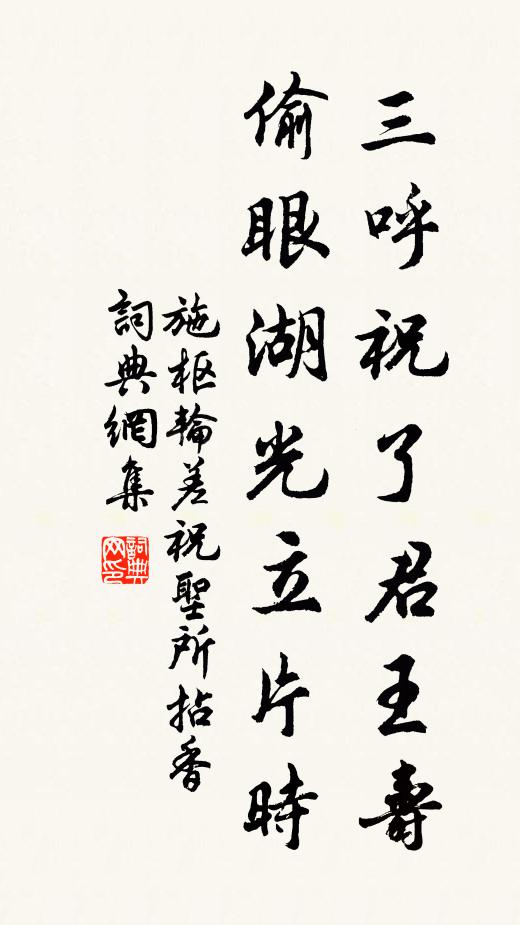 三呼祝了君王壽
偷眼湖光立片時
施枢輪差祝聖所拈香
詞典網集
詞典網印